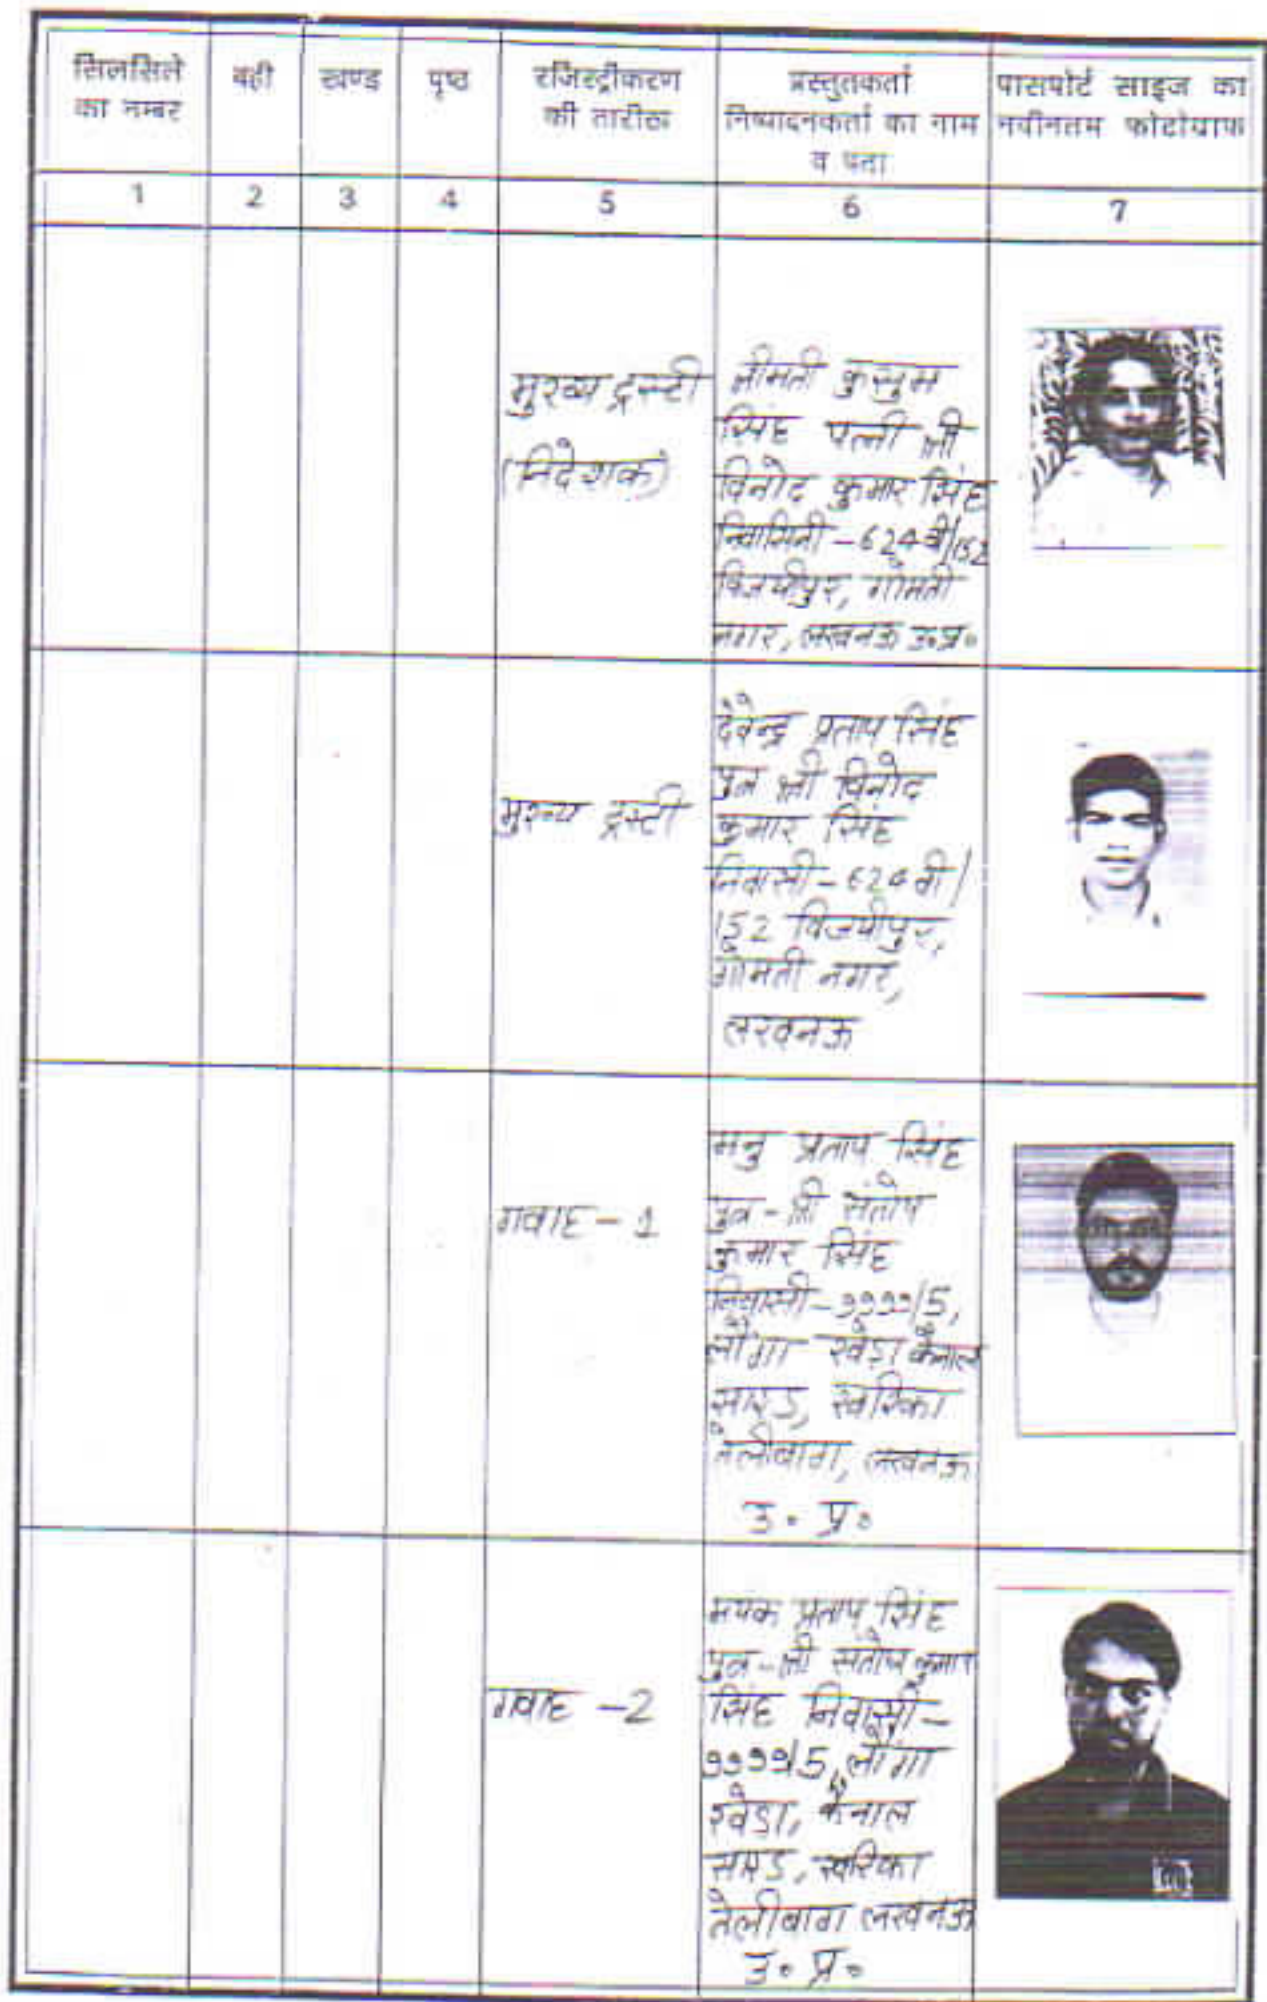 सिलसिले का नम्बर
बही
खण्ड
पृष्ठ
रजिस्ट्रीकरण की तारीख
प्रस्तुतकर्ता
निष्पादनकर्ता का नाम
व पता
पासपोर्ट साइज का
नवीनतम फोटोग्राफ
1 2 3 4 5 6 7
मुख्य ट्रस्टी
(निदेशक)
श्रीमती कुसुम
सिंह पत्नी श्री
विनोद कुमार सिंह
निवासिनी - 624 बी/152
विजयीपुर, गोमती
नगर, लखनऊ उ॰प्र॰
मुख्य ट्रस्टी
देवेन्द्र प्रताप सिंह
पुत्र श्री विनोद
कुमार सिंह
निवासी - 624 बी/
152 विजयीपुर,
गोमती नगर,
लखनऊ
गवाह - 1
मनु प्रताप सिंह
पुत्र - श्री संतोष
कुमार सिंह
निवासी - 9999/5,
लौंगा खेड़ा कैनाल
साइड, खरिका
तेलीबाग, लखनऊ
उ॰ प्र॰
गवाह - 2
मयंक प्रताप सिंह
पुत्र - श्री संतोष कुमार
सिंह निवासी -
9999/5, लौंगा
खेड़ा, कैनाल
साइड, खरिका
तेलीबाग लखनऊ
उ॰ प्र॰